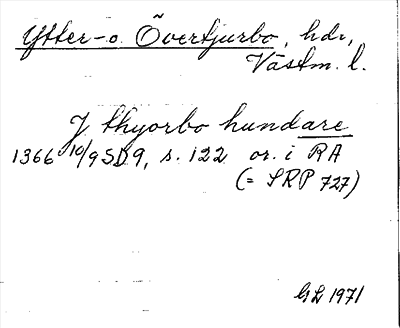 Ytter- o. Övertjurbo, hdr,
Västm. l.
J thyorbo hundare
1366 10/9 SD 9, s. 122 or. i RA
(= SRP 727)
GL 1971